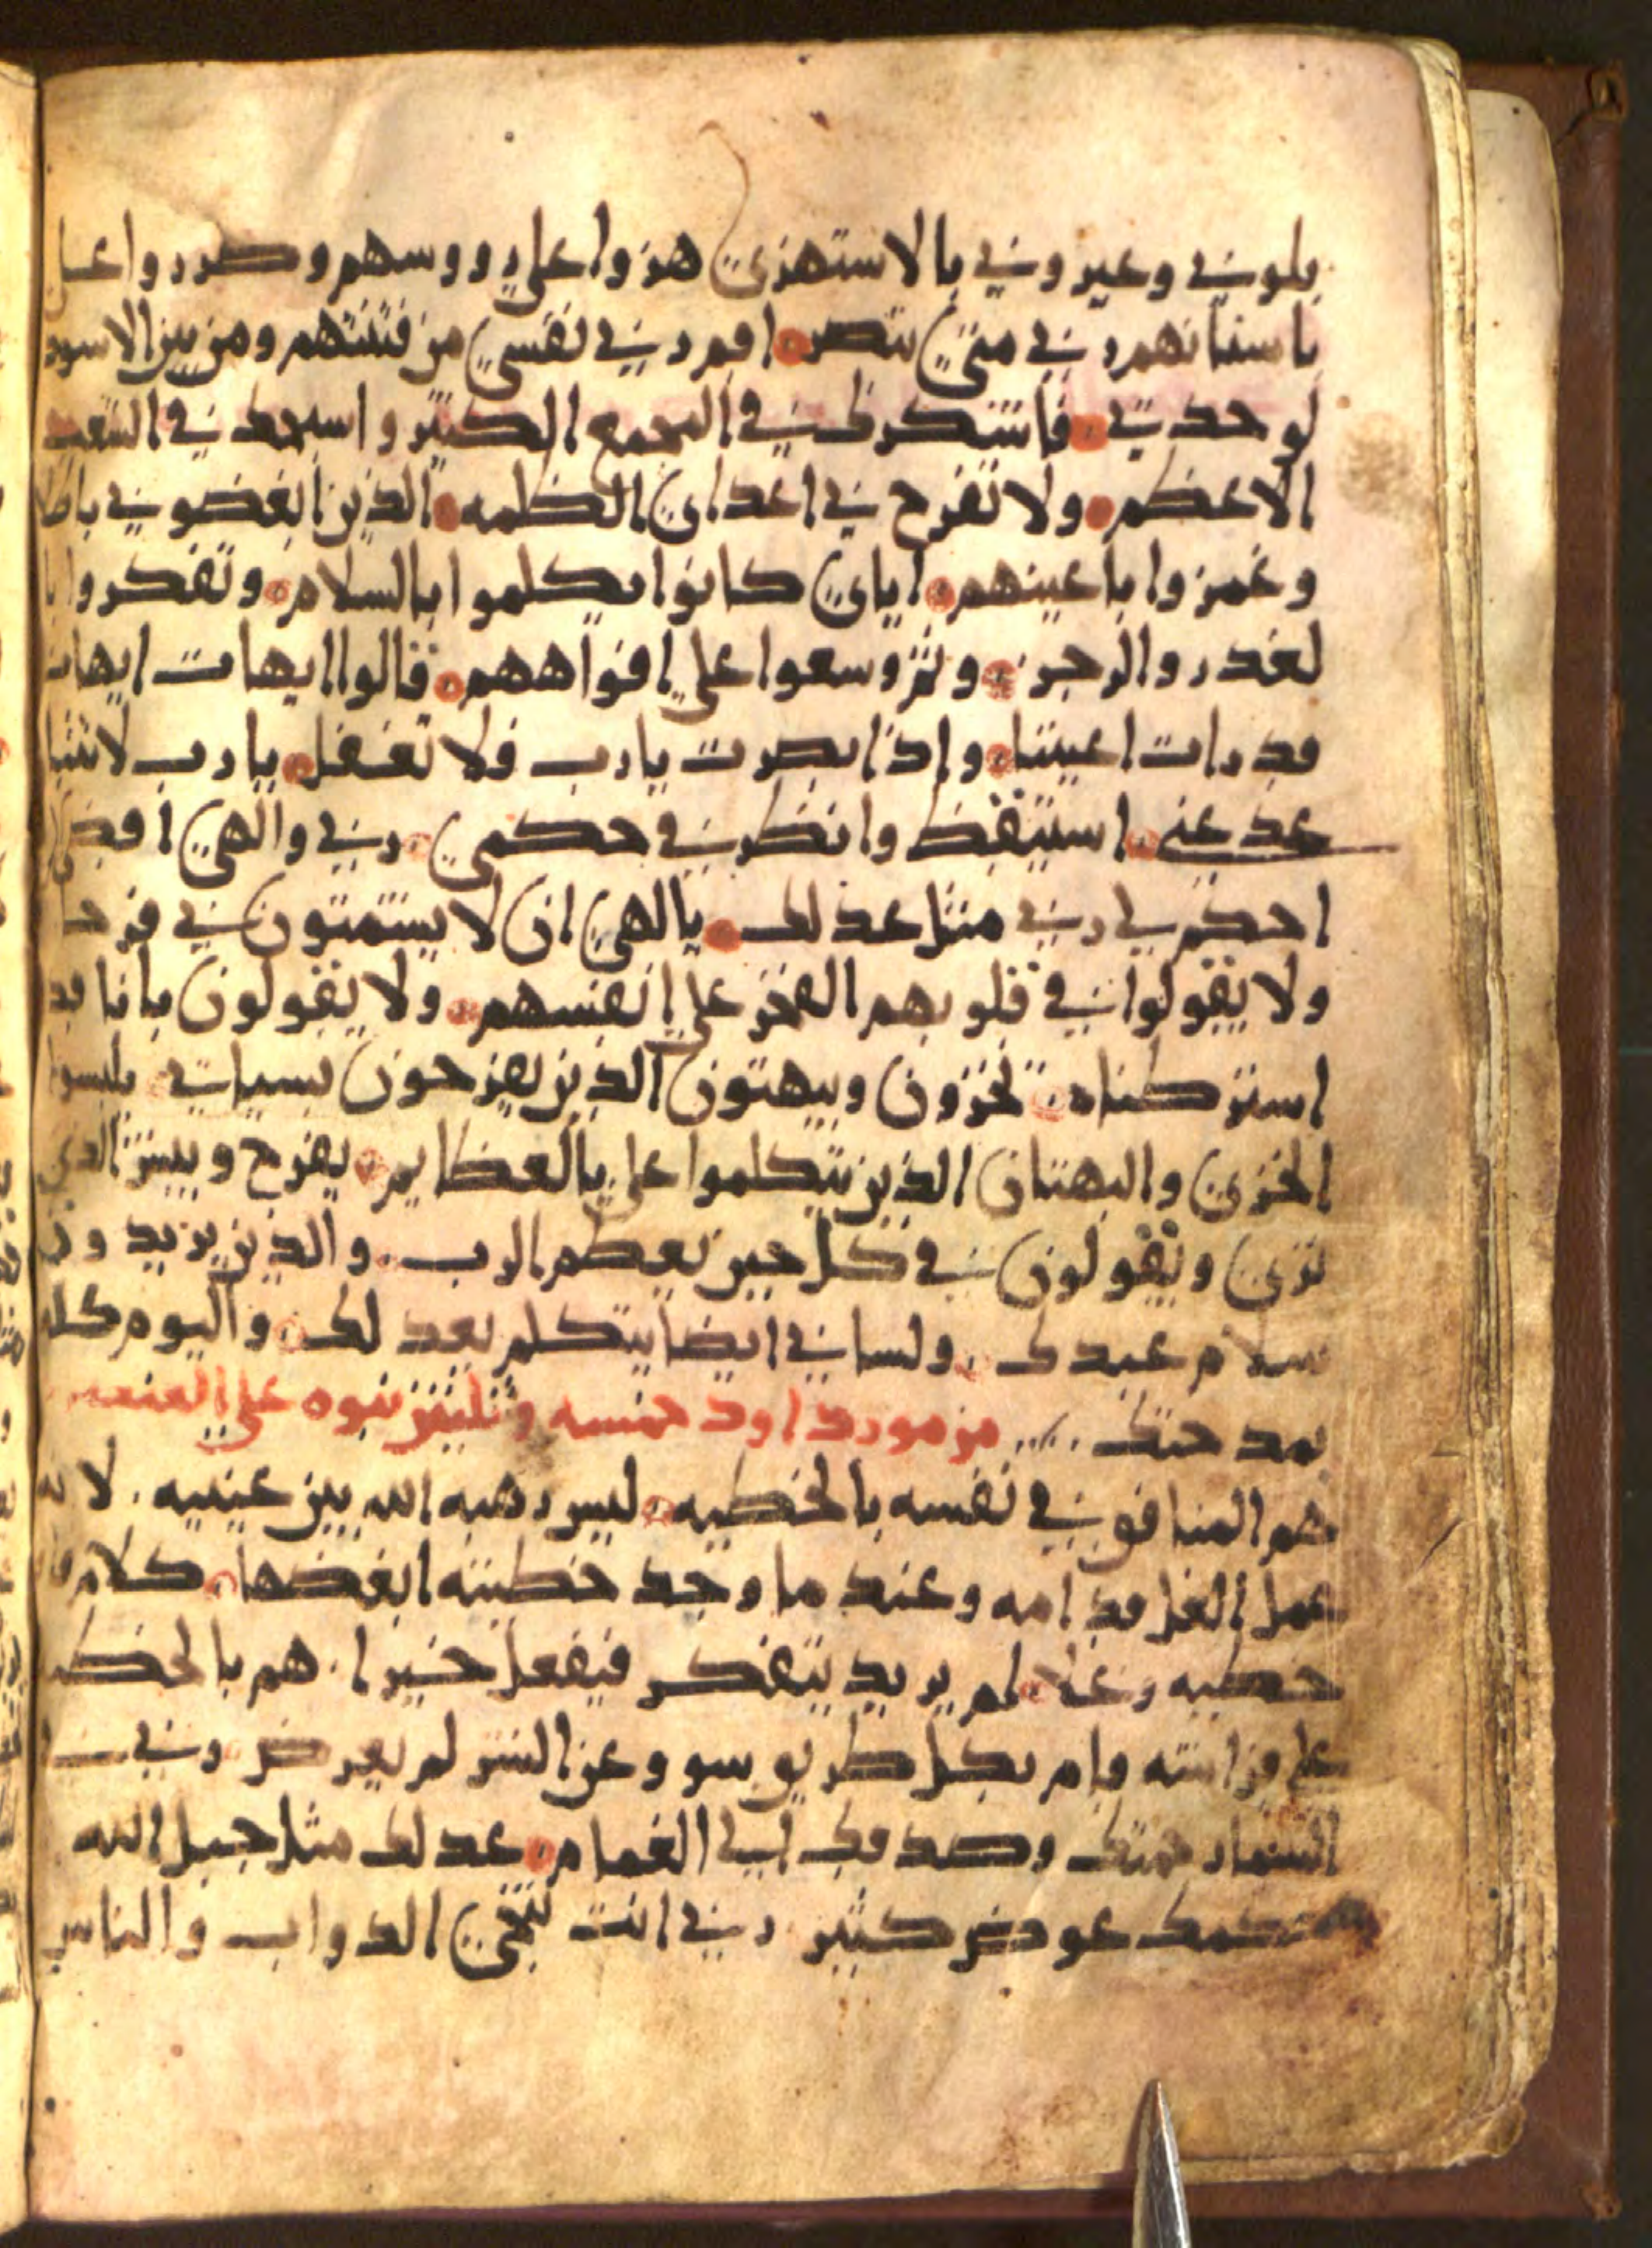 بلوني وعيروني بالاستهزي هزوا علي رووسهم وصرروا علي
باسنانهم ربي متي تنصر اقم ربي نفسي من فتنتهم ومن بين الاسود
لوحدتي فاشكرك في المجمع الكثير واسبحك في الشعب
الاعظم ولا تفرح بي اعداي الظلمه الذين ابغضوني باطلا
وغمزوا باعينهم اياي كانوا يكلموا بالسلام وتفكروا با
لغدر والرجز وثم وسعوا علي افواههم قالوا ايهات ايهات
قد رات اعيننا واذا بصرت يارب فلا تغفل يا رب لا تتبا
عد عني استيقظ وانظر في حكمي ربي والهي اقض لي
احكم لي ربي مثل عدلك يا الهي ان لا يشتمتون بي فرحا
ولا يقولوا في قلوبهم الفخر علي انفسهم ولا يقولون بانا قد
استركناه تخزون ويبهتون الذين يفرحون بسياتي يلبسوا
الخزي والبهتان الذين يتكلموا علي بالعظايم يفرح ويسر الذي
بري ويقولون في كل حين يعظم الرب والذين يريدون
سلام عبدك ولساني ايضا يتكلم بعدلك واليوم كله
بمدحتك مزمور داود خمسه وثلثين نبوه علي
هم المنافق في نفسه بالخطيه ليس رهبه الله بين عينيه لانه
عمل الغل قدامه وعند ما وجد خطيته ابغضها كلام فاه
خطيه وغل لم يريد يتفكر فيفعل خيرا هم بالخطيه
علي فراشه وام بكل طريق سو وعن الشر لم يعرض ربي في
السما رحمتك وصدقك الي الغمام عدلك مثل جبل الله
حكمك عوض كثير ربي انت تنجي الدواب والناس